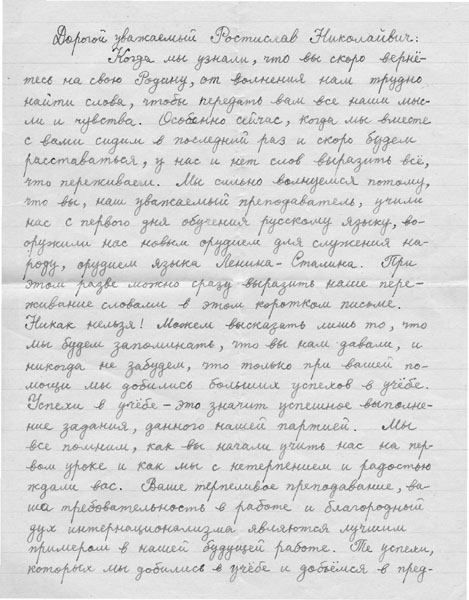 Дорогой уважаемый Ростислав Николайвич:
Когда мы узнали, что вы скоро вернё-
тесь на свою Родину, от волнения нам трудно
найти слова, чтобы передать вам все наши мыс-
ли и чувства. Особенно сейчас, когда мы вместе
с вами сидим в последний раз и скоро будем
расставаться, у нас и нет слов выразить всё,
что переживаем. Мы сильно волнуемся потому,
что вы, наш уважаемый преподаватель, учили
нас с первого дня обучения русскому языку, во-
оружили нас новым орудием для служения на-
роду, орудием языка Ленина-Сталина. При
этом разве можно сразу выразить наше пере-
живание словами в этом коротком письме.
Никак нельзя! Можем высказать лишь то, что
мы будем запоминать, что вы нам давали, и
никогда не забудем, что только при вашей по-
мощи мы добились больших успехов в учёбе.
Успехи в учёбе - это значит успешное выполне-
ние задания, данного нашей партией. Мы
все помним, как вы начали учить нас на пер-
вом уроке и как мы с нетерпением и радостью
ждали вас. Ваше терпеливое преподавание, ва-
ша требовательность в работе и благородный
дух интернационализма являются лучшим
примером в нашей будущей работе. Те успехи,
которых мы добились в учёбе и добьёмся в пред-